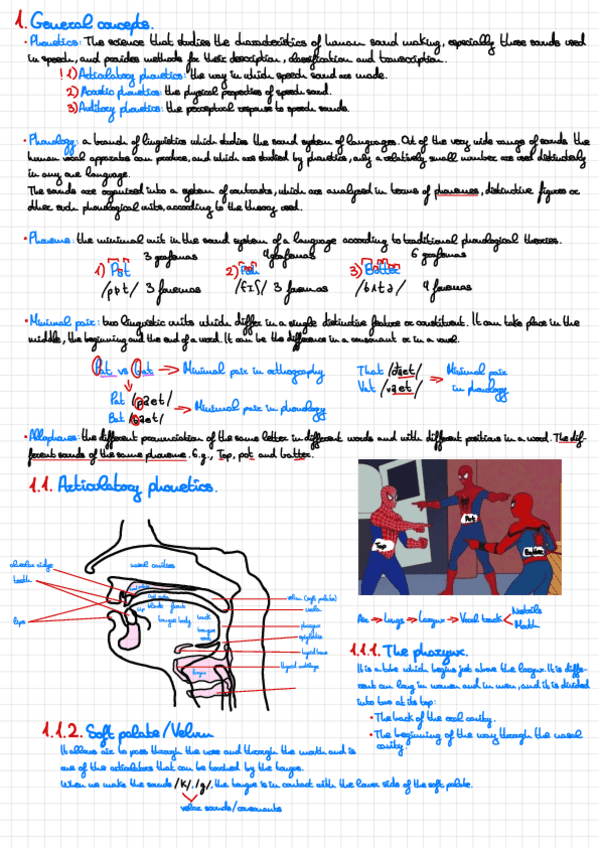 1. General concepts.
• Phonetics: The science that studies the characteristics of human sound making, especially those sounds used
in speech, and provides methods for their description, classification and transcription.
! 1) Articulatory phonetics: the way in which speech sound are made.
2) Acoustic phonetics: the physical properties of speech sound.
3) Auditory phonetics: the perceptual response to speech sounds.
• Phonology: a branch of linguistics which studies the sound system of languages. Out of the very wide range of sounds the
human vocal apparatus can produce, and which are studied by phonetics, only a relatively small number are used distinctively
in any one language.
The sounds are organized into a system of contrasts, which are analysed in terms of phonemes, distinctive figures or
other such phonological units, according to the theory used.
• Phoneme: the minimal unit in the sound system of a language according to traditional phonological theories.
3 grafemas 4 grafemas 6 grafemas
1) Pot 2) Fish 3) Better
/pɒt/ 3 fonemas /fɪʃ/ 3 fonemas 4 fonemas
• Minimal pair: two linguistic units which differ in a single distinctive feature or constituent. It can take place in the
middle, the beginning and the end of a word. It can be the difference in a consonant or in a vowel.
Pat vs bat → Minimal pair in orthography
That /ðaet/
Vat /vaet/ → Minimal pair in phonology
Pat /paet/
Bat /baet/ → Minimal pair in phonology
• Allophones: the different pronunciation of the same letter in different words and with different positions in a word. The dif-
ferent sounds of the same phoneme. E.g., Top, pot and batter.
1.1. Articulatory phonetics.
nasal cavities
alveolar ridge
teeth
lips
tip blade front back
tongue body
tongue root
velum (soft palate)
uvula
pharynx
epiglottis
hyoid bone
thyroid cartilage
larynx
Top
Pot
Air → Lungs → Larynx → Vocal track < Nostrils
Mouth
1.1.1. The pharynx.
It is a tube which begins just above the larynx. It is diffe-
rent on long in women and in men, and it is divided
into two at its top:
• The back of the oral cavity.
• The beginning of the way through the nasal
cavity.
1.1.2. Soft palate/Velum
It allows air to pass through the nose and through the mouth and is
one of the articulators that can be touched by the tongue.
When we make the sounds /k/, /g/, the tongue is in contact with the lower side of the soft palate.
velar sounds/consonants